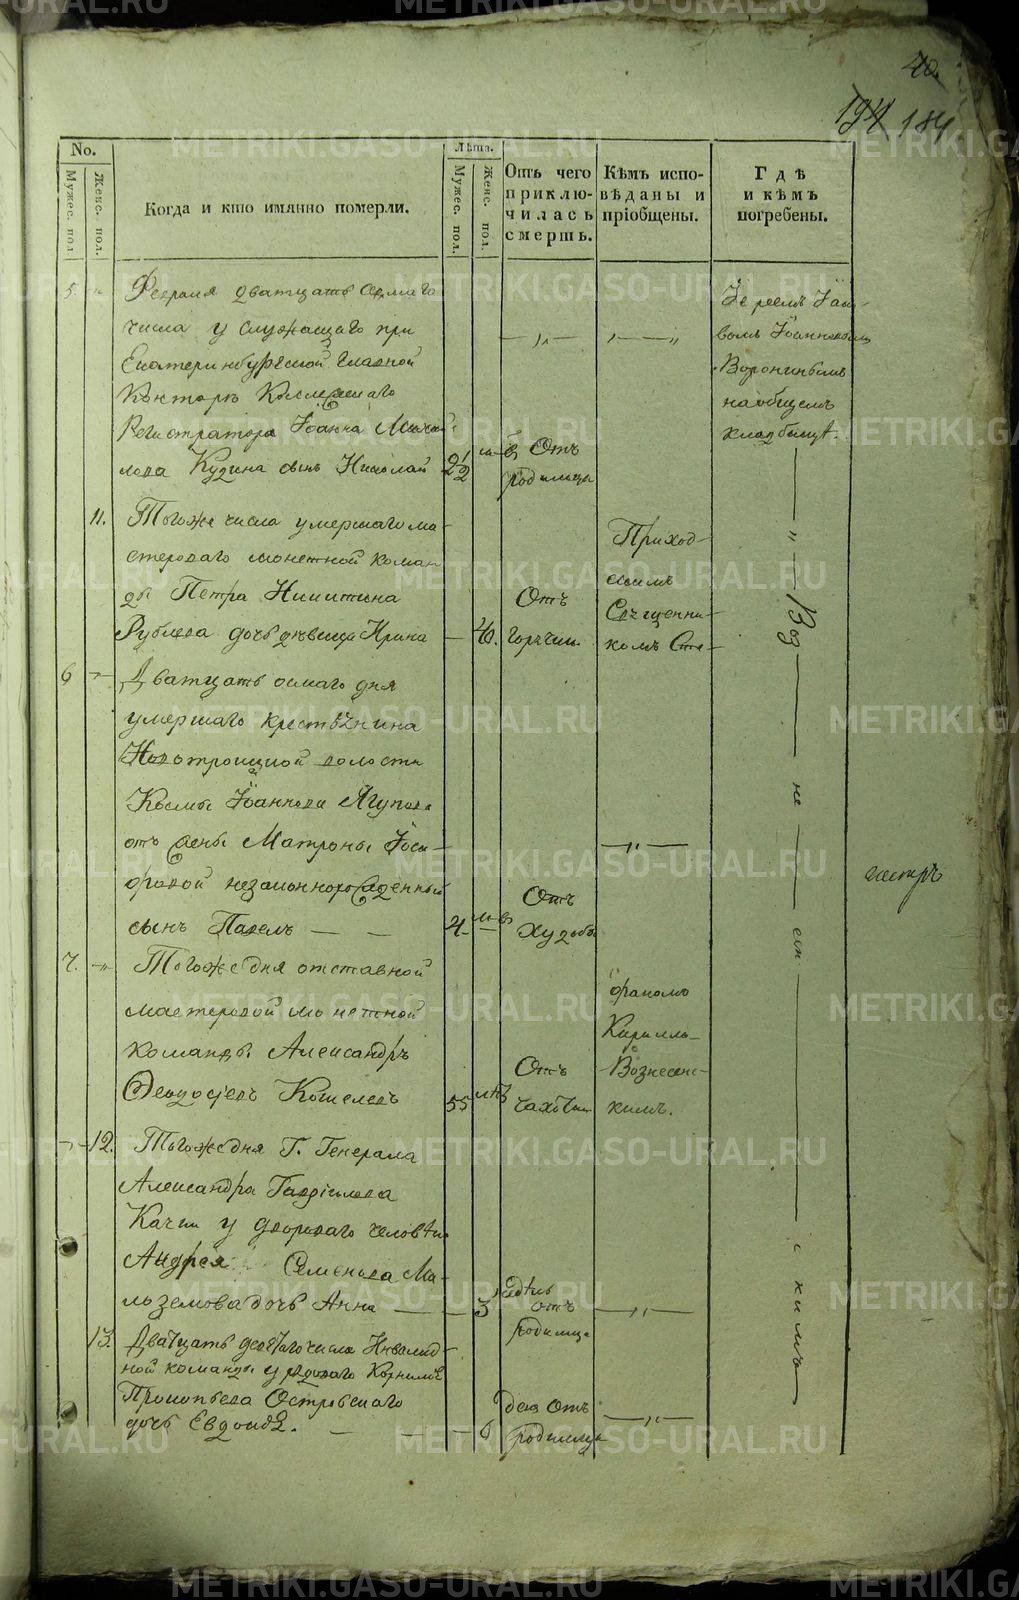 40.
194 184
No.
Мужес. пол.
Женс. пол.
Когда и кто имянно померли.
Лѣта.
Мужес. пол.
Женс. пол.
Отъ чего
приклю-
чилась
смерть.
Кѣмъ испо-
вѣданы и
пріобщены.
Гдѣ
и кѣмъ
погребены.
5.
Февраля дватцать седмаго
числа у служащаго при
Екатеринбургской главной
Канторѣ Коллежскаго
Регистратора Іоанна Михай-
лова Кудина сынъ Николай
2 1/2
м-в
Отъ
родимца
Іереемъ
вомъ Іоанновымъ
Воронинымъ
на общемъ
кладбищѣ.
11.
Тогоже числа умершаго ма-
стероваго монетной коман
ды Петра Никитина
Рублева дочь дѣвица Ирина
40.
Отъ
горячки
Приход-
скимъ
Священни-
комъ Сте-
6
Дватцать осмаго дня
умершаго крестьянина
Новотроицкой волости
Козмы Іоаннова Ягупова
отъ жены Матроны
незаконнорожденный
сынъ Павелъ
4
м-в
Отъ
худобы
7.
Тогоже дня отставной
мастеровой монетной
команды Александръ
Феодосѣевъ Кошелевъ
55
лѣтъ
Отъ
чахотки
фаномъ
Кирилло-
Вознесенс-
кимъ.
12.
Тогоже дня Г. Генерала
Александра Гаврилова
Качки у двороваго человѣка
Андрея Семенова Ма-
лоземова дочь Анна
3
недѣль
отъ
родимца
13.
Дватцать девятаго числа Инвалид-
ной команды у рядоваго Корнилы
Прокопьева Островскаго
дочь Евдокія.
6
отъ
родимца
Воз
не
сен
с
кимъ
METRIKI.GASO-URAL.RU